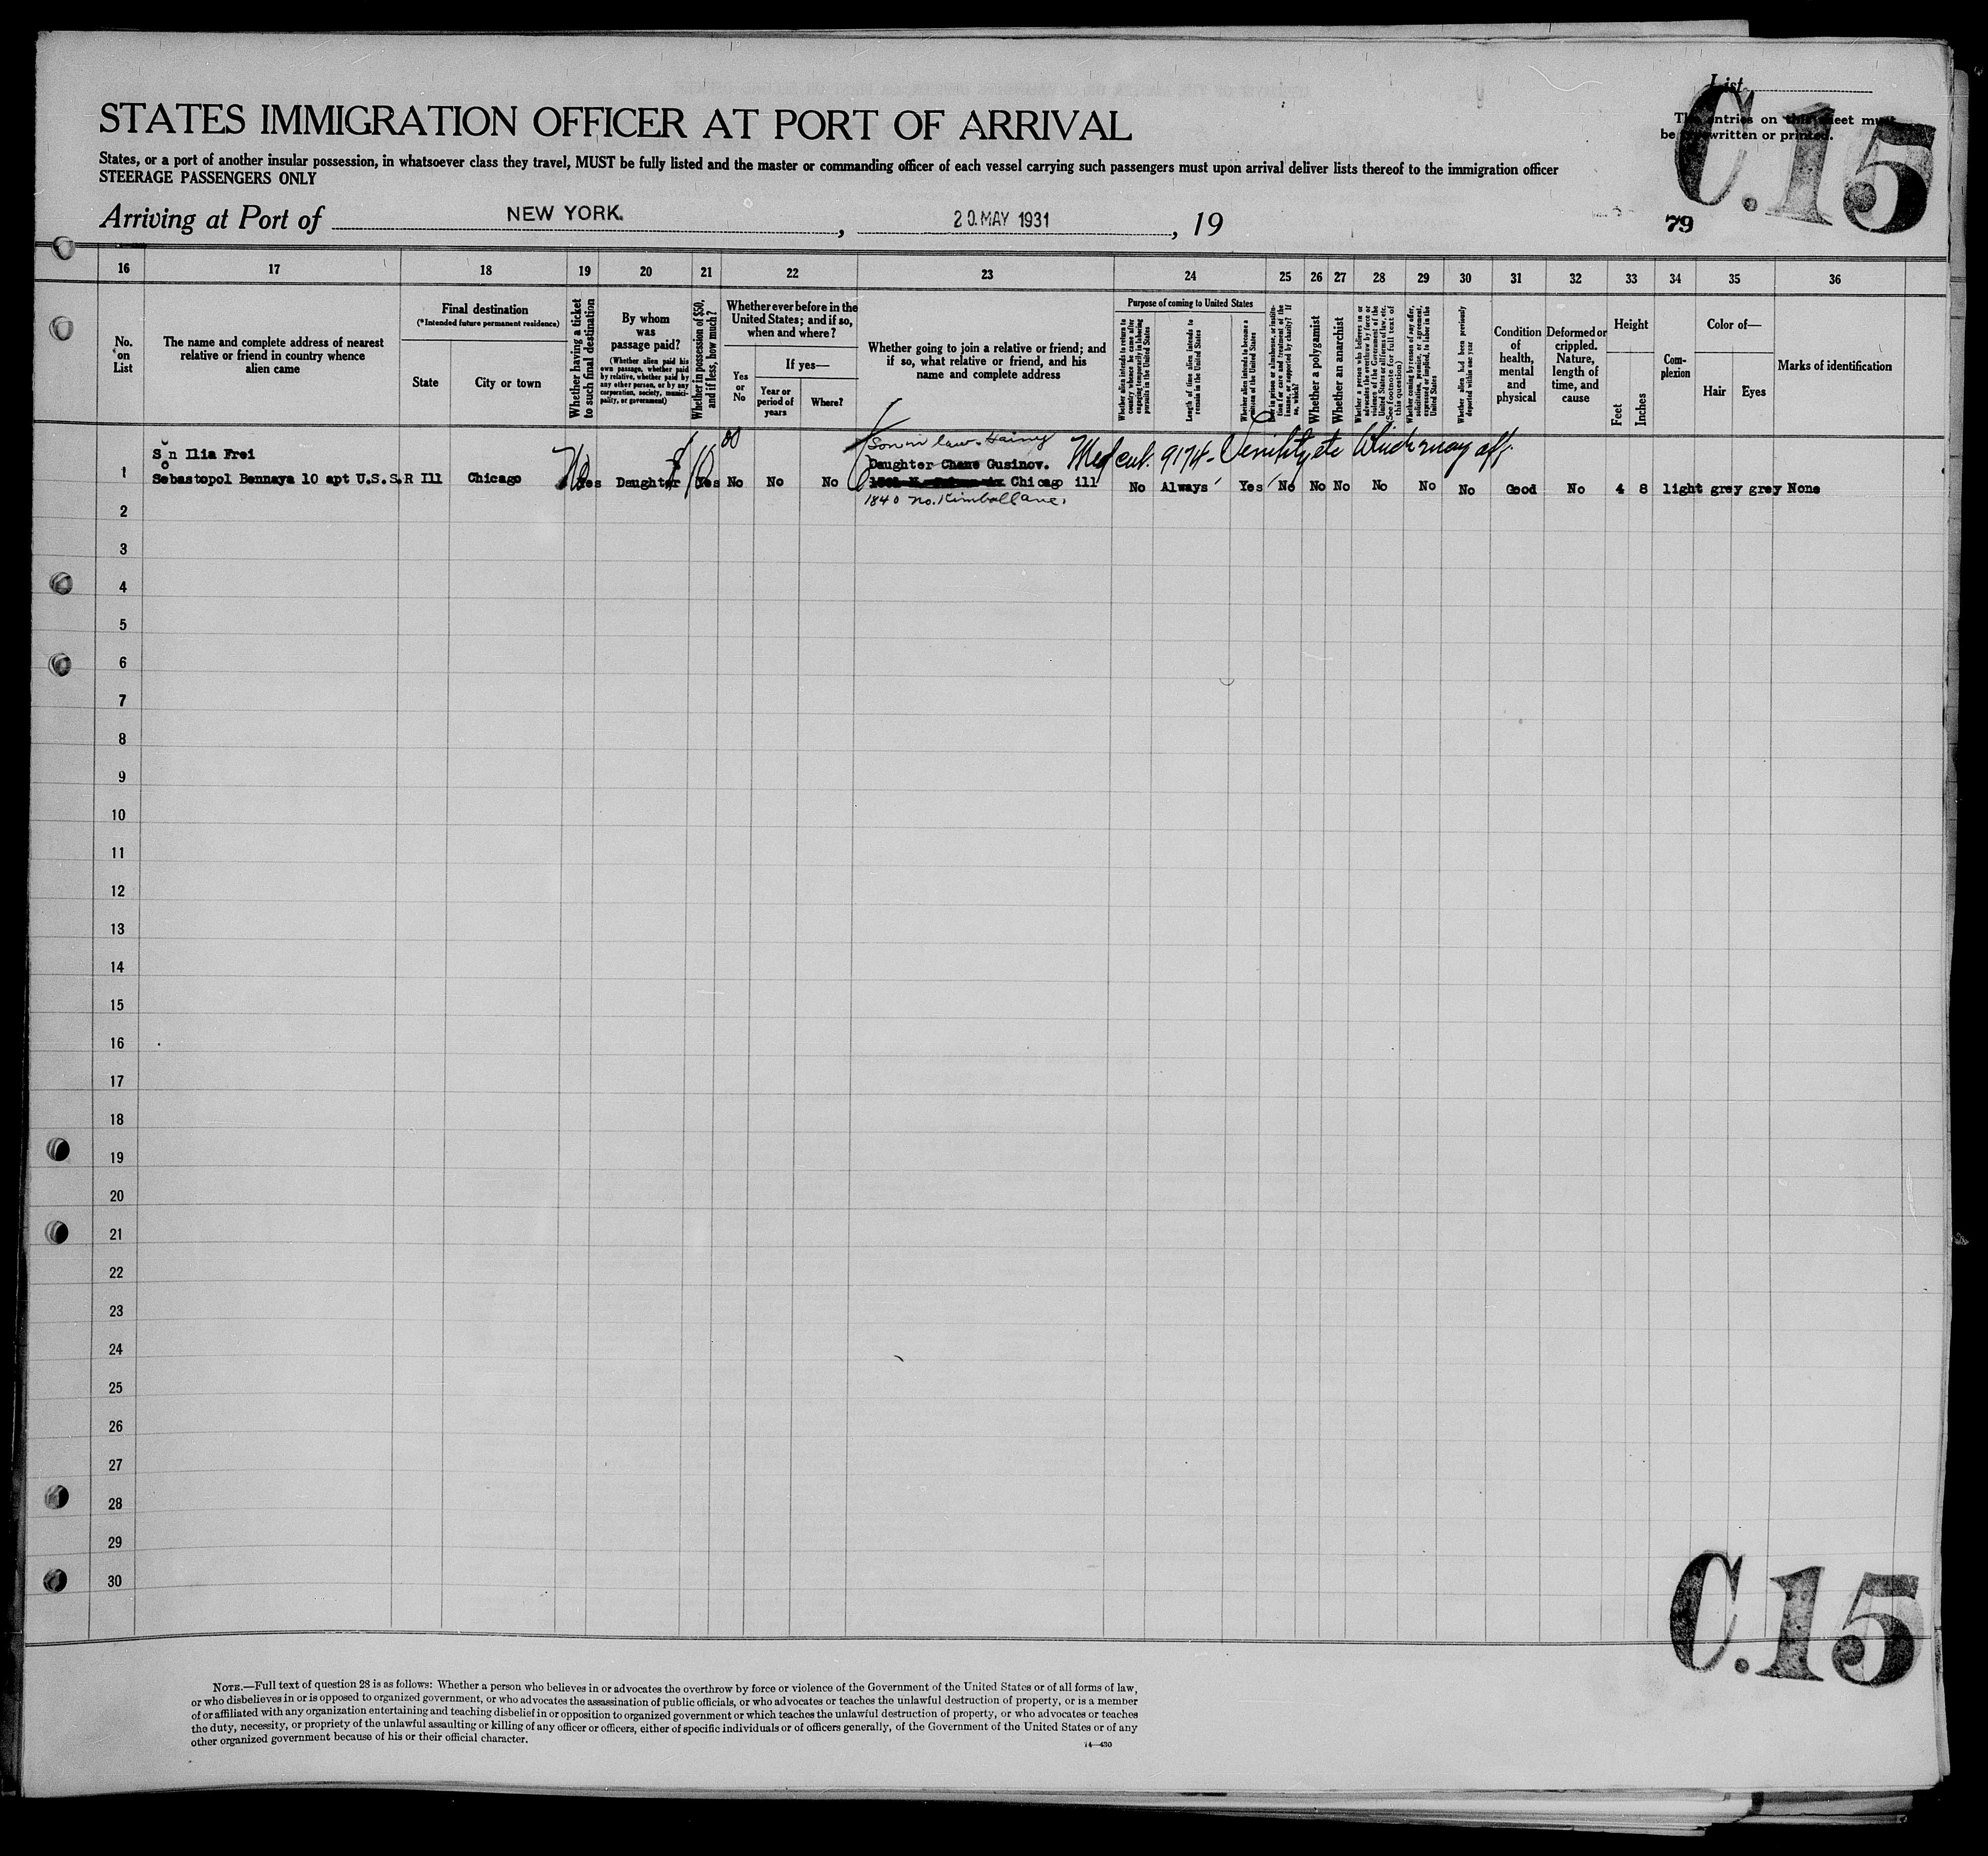 List
C.15
STATES IMMIGRATION OFFICER AT PORT OF ARRIVAL
The entries on this sheet must
be typewritten or printed.
States, or a port of another insular possession, in whatsoever class they travel, MUST be fully listed and the master or commanding officer of each vessel carrying such passengers must upon arrival deliver lists thereof to the immigration officer
STEERAGE PASSENGERS ONLY
Arriving at Port of NEW YORK. , 20.MAY 1931 , 19
79
16 17 18 19 20 21 22 23 24 25 26 27 28 29 30 31 32 33 34 35 36
No. on List
The name and complete address of nearest relative or friend in country whence alien came
Final destination
(*Intended future permanent residence)
State
City or town
Whether having a ticket to such final destination
By whom was passage paid?
(Whether alien paid his own passage, whether paid by relative, whether paid by any other person, or by any corporation, society, municipality, or government)
Whether in possession of $50, and if less, how much?
Whether ever before in the United States; and if so, when and where?
Yes or No
If yes—
Year or period of years
Where?
Whether going to join a relative or friend; and if so, what relative or friend, and his name and complete address
Purpose of coming to United States
Whether alien intends to return to country whence he came after engaging temporarily in laboring pursuits in the United States
Length of time alien intends to remain in the United States
Whether alien intends to become a citizen of the United States
Ever in prison or almshouse, or institution for care and treatment of the insane, or supported by charity? If so, which?
Whether a polygamist
Whether an anarchist
Whether a person who believes in or advocates the overthrow by force or violence of the Government of the United States or all forms of law, etc. (See footnote for full text of this question)
Whether coming by reason of any offer, solicitation, promise, or agreement, expressed or implied, to labor in the United States
Whether alien had been previously deported within one year
Condition of health, mental and physical
Deformed or crippled. Nature, length of time, and cause
Height
Feet
Inches
Complexion
Color of—
Hair
Eyes
Marks of identification
Son in law
Med cert. 9174 - Senility etc which may aff.
S n Ilia Frei
o
Daughter Chane Gusinov.
1 Sebastopol Bennaya 10 apt U.S.S.R Ill Chicago Yes Daughter Yes No No No Chicago ill No Always Yes No No No No No No Good No 4 8 light grey grey None
1840 no. Kimball ave.
2
3
4
5
6
7
8
9
10
11
12
13
14
15
16
17
18
19
20
21
22
23
24
25
26
27
28
29
30
C.15
NOTE.—Full text of question 28 is as follows: Whether a person who believes in or advocates the overthrow by force or violence of the Government of the United States or of all forms of law,
or who disbelieves in or is opposed to organized government, or who advocates the assassination of public officials, or who advocates or teaches the unlawful destruction of property, or is a member
of or affiliated with any organization entertaining and teaching disbelief in or opposition to organized government or which teaches the unlawful destruction of property, or who advocates or teaches
the duty, necessity, or propriety of the unlawful assaulting or killing of any officer or officers, either of specific individuals or of officers generally, of the Government of the United States or of any
other organized government because of his or their official character.
14—430